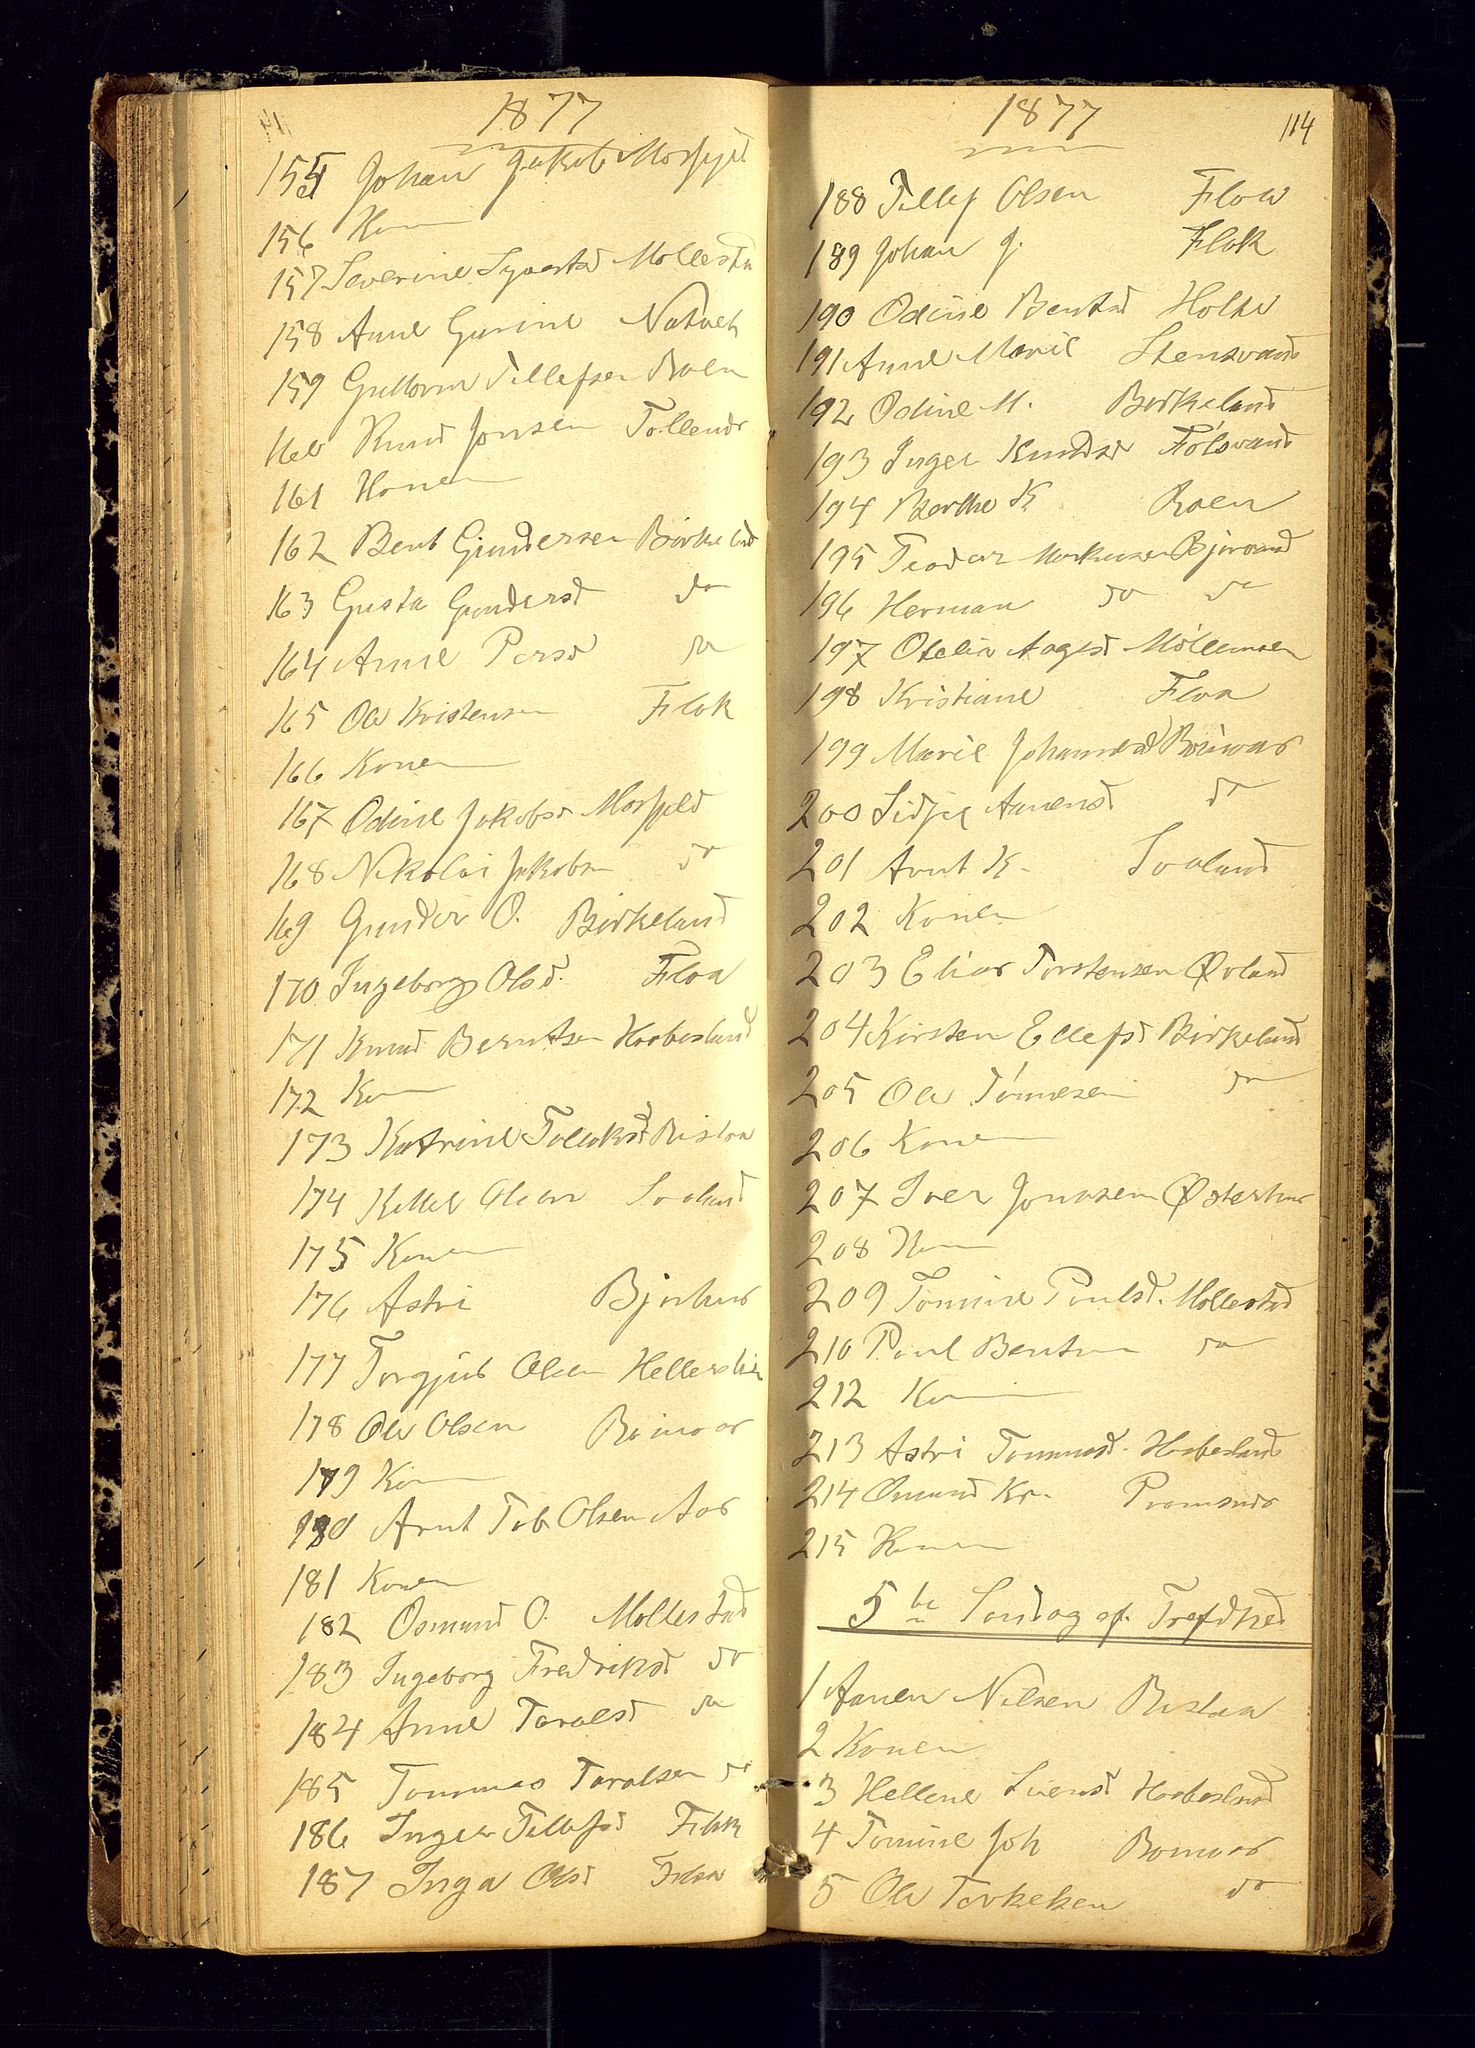 1877
155 Johan Jakob Mosfjel
156
157 Severine Syverts Mollestd
158 Anne Gurine
159 Guttorm Tellefsen Roen
160 Knud Jonsen Tollends
161 Konen
162 Bent Gundersen Birkeland
163 Gusta Gundersd do
164 Anne Persd do
165 Ole Kristensen Flok
166 Konen
167 Odine Jakobsd Mosfjeld
168 Nikolai Jakobsn do
169 Gunder O. Birkeland
170 Ingeborg Olsd. Floa
171 Knud Berntsen Haabesland
172 Kon
173 Katrine Tellefsd Ristaa
174 Kittel Olsen Soland
175 Konen
176 Astri Bjorhus
177 Torgjus Olsen Hellerslien
178 Ole Olsen Boinvar
179 Kon
180 Arnt Tob Olsen Aas
181 Konen
182 Osmund O. Mollestad
183 Ingeborg Fredriksd do
184 Anne Taralsd do
185 Tommas Taralsen do
186 Inger Tellefsd Flok
187 Inga Olsd Floa
1877
114
188 Tellef Olsen Floa
189 Johan J. Flok
190 Odine Bentsd Holte
191 Anne Marie Stensvand
192 Odine M. Birkeland
193 Inger Knudsd Fölsvand
194 Berthe K Roen
195 Teodor Markusen Bjorvand
196 Herman do do
197 Otelia Aagesd Möllemoen
198 Kristiane Floa
199 Marie Johannesd Boinvar
200 Sidsel Aanensd do
201 Arnt K. Soland
202 Konen
203 Elias Torstensen Øvland
204 Kirsten Ellefsd Birkeland
205 Ole Tönnesen do
206 Konen
207 Iver Jonasen Østerhus
208 Kon
209 Tomine Poulsd. Mollestad
210 Poul Bentsen do
212 Kon
213 Astri Tommasd. Haabesland
214 Omund Kr.
215 Konen
5te Sondag ef. Trefdhed
1 Aanen Nilsen Ristaa
2 Konen
3 Hellene Svensd Haabesland
4 Tomine Joh Bonvar
5 Ole Terkelsen do